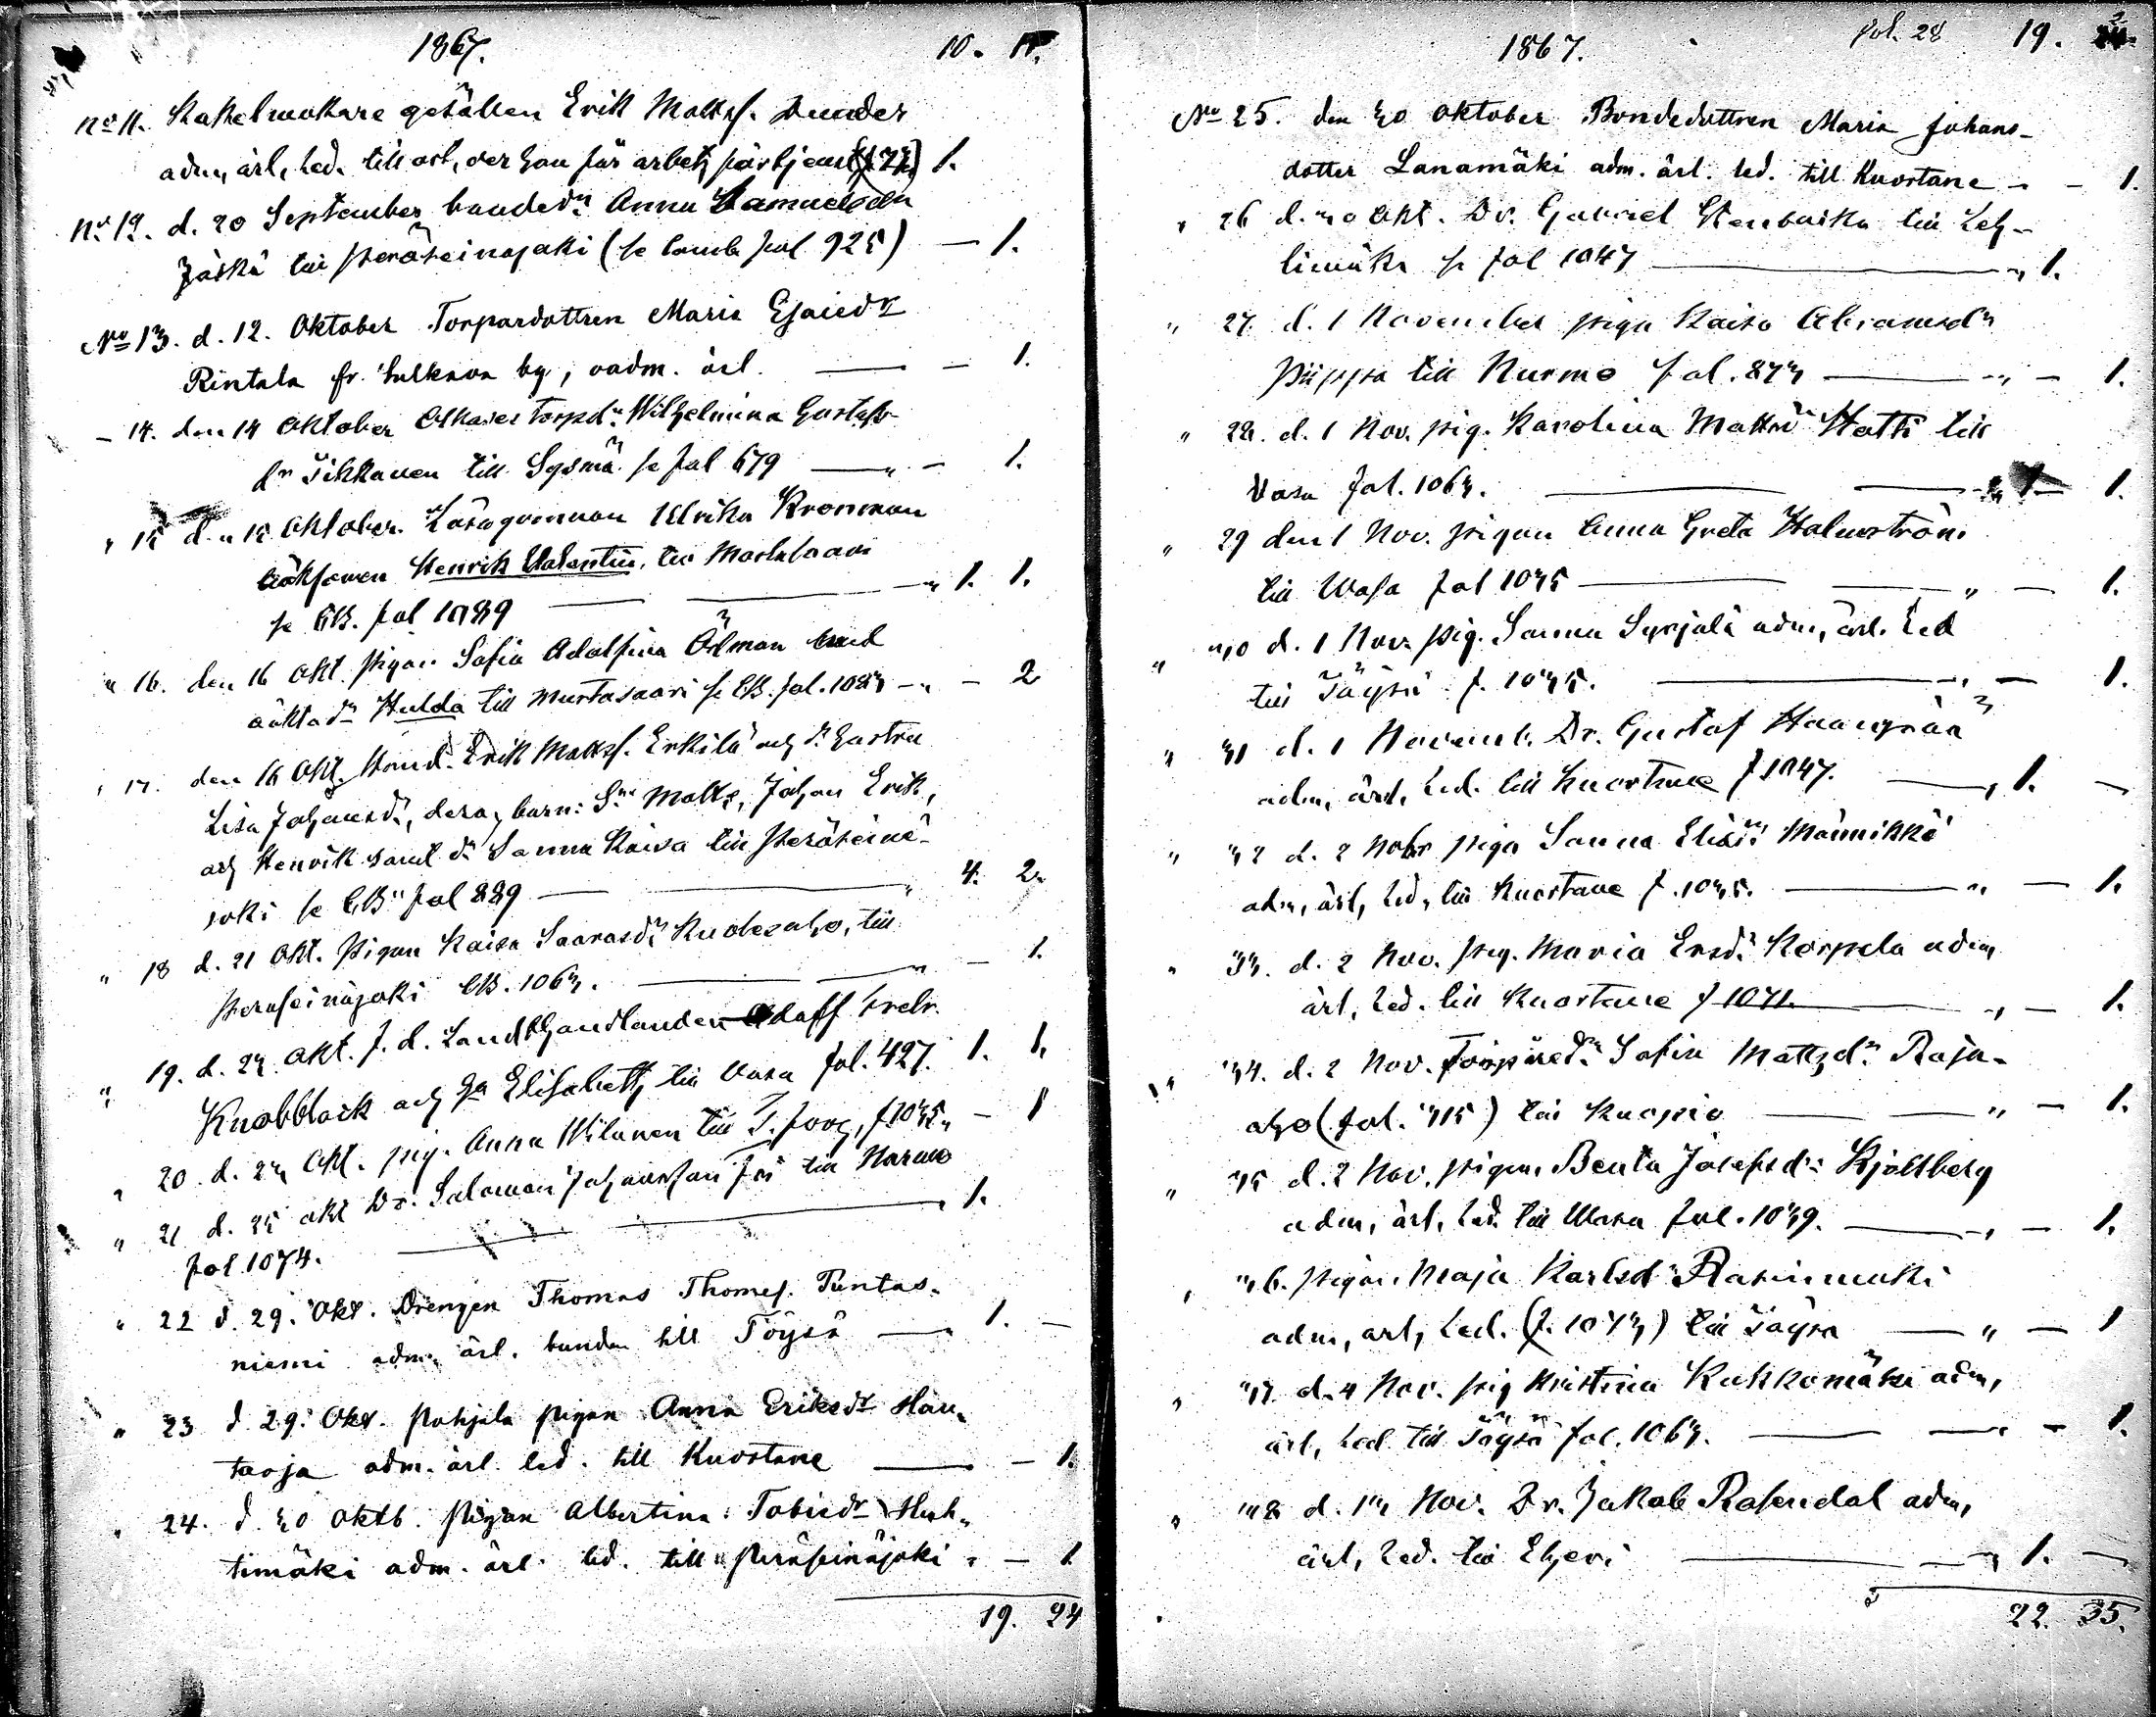 1867. 10. 11.
No 11. Kakelmakare gesällen Erik Mattsf. Sunder
adm, ärl, led. till ort, der han får arbete, förtjenst (f 72) 1.
No 12. d. 20 September bonded:n Anna Samuelsdn
Jäskä till Peräseinäjoki (se comb fol 925) — 1.
No 13. d. 12. Oktober Torpardottren Maria Esaiedr
Rintala fr. Sulkava by, oadm. ärl. — — 1.
— 14. den 14 Oktober Torpdn Wilhelmina Gustafs-
dn Tikkanen till Sysmä se fol 679 — „ — 1.
„ 15 d. 15 Oktober. Ulrika Kronman
Henrik Valentin, till
se CB. fol 1089 — — „ 1. 1.
„ 16. den 16 Okt. pigan Sofia Adolfina Öilman med
oäkta dn Hulda till Mustasaari se CB. fol. 1083 — „ — 2
„ 17. den 16 Okt. Erik Mattsf. Erkilä och d. hustru
Lisa Johansdn, deras barn: Sr Matts, Johan Erik,
och Henrik samt dn Sanna Kaisa till Peräseinä-
joki se CB fol 889 — — „ 4. 2.
„ 18 d. 21 Okt. Pigan Kaisa till
Peräseinäjoki CB. 1063. — — „ — 1.
„ 19. d. 23 Okt. f. d. Landthandlanden Adolf Fredr.
Knobblock och Elisabeth till Vasa fol. 427. 1. 1.
„ 20. d. 23 Okt. pig. Anna Wilanen till f 1035 „ — 1
„ 21 d. 25 okt Dr. Salomon Johansson till Nurmo
fol 1074. — — „ 1.
„ 22 d. 29. Okt. Drengen Thomas Thomef. Puntas-
niemi adm. ärl. bunden till Töysä — „ 1. —
„ 23 d. 29. Okt. Pohjola pigan Anna Eriksdr Hau-
taoja adm. ärl. led. till Kuortane — — 1.
„ 24. d. 30 Oktb. Pigan Albertina Tobiedr Huh-
timäki adm. ärl. led. till Peräseinäjoki „ — 1
19. 24
1867. fol. 28 19. 24.
No 25. den 30 Oktober Bondedottren Maria Johans-
dotter Lanamäki adm. ärl. led. till Kuortane — — 1.
„ 26 d. 30 Okt. Dr. Gabriel Stenbacka till Leh-
timäki se fol 1047 — „ 1.
„ 27. d. 1 November piga Kaisa Abramsdn
till Nurmo fol. 873 — „ — 1.
„ 28. d. 1 Nov. pig. Karolina Mattsdn Hatti till
Vasa fol. 1063. — — 1.
„ 29 den 1 Nov. pigan Anna Greta Holmström
till Wasa fol 1035 — — „ — 1.
„ 30 d. 1 Nov. pig. Sanna Syrjälä adm, ärl. Led
till Töysä f. 1035. — „ — 1.
„ 31 d. 1 Novemb. Dr. Gustaf
adm, ärl, Led. till Kuortane f 1047. — „ 1. —
„ 32 d. 2 Nobr piga Sanna Eliædn Männikkö
adm, ärl, led, till Kuortane f. 1035. — „ — 1.
„ 33. d. 2 Nov. pig. Maria Ersdn Korpela adm,
ärl, led. till Kuortane f 1071. — „ — 1.
„ 34. d. 2 Nov. Torparedn Sofia Mattsdn Raja-
aho (fol. 315) till Kuopio — — „ — 1.
„ 35 d. 2 Nov. pigan Beata Josefsdn Kjellberg
adm, ärl, led. till Wasa fol. 1039. — „ — 1.
„ 36. Pigan Maja Karlsdn Rasinmäki
adm, ärl, Led. (f. 1073) till Töysä — „ — 1
„ 37. d. 4 Nov. pig Kristina Kukkomäki adm,
ärl, Led till Töysä fol. 1063. — „ — 1.
„ 38 d. 13 Nov. Dr. Jakob Rosendal adm,
ärl, led. till Etseri — „ 1. —
22. 35.